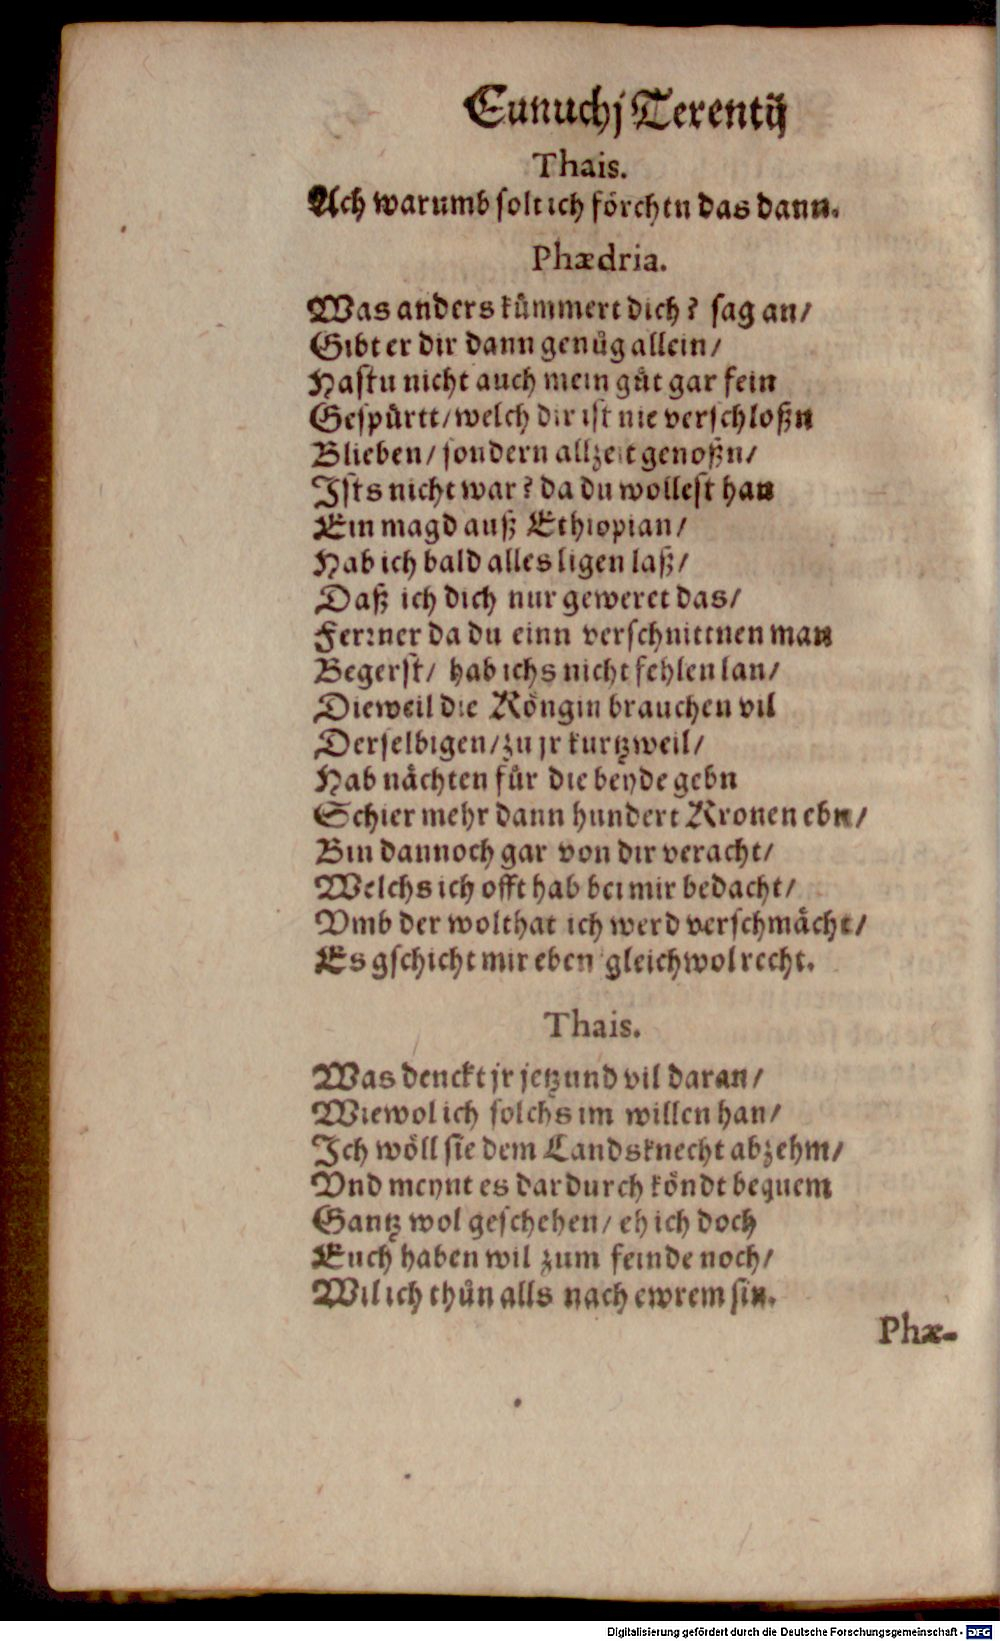 Eunuchj Terentij
Thais.
Ach warumb solt ich förchtn das dann.
Phædria.
Was anders kümmert dich? sag an/
Gibt er dir dann genůg allein/
Hastu nicht auch mein gůt gar fein
Gespürtt/welch dir ist nie verschloßn
Blieben/ sondern allzeit genoßn/
Ists nicht war? da du wollest han
Ein magd auß Ethiopian/
Hab ich bald alles ligen laß/
Daß ich dich nur geweret das/
Ferrner da du einn verschnittnen man
Begerst/ hab ichs nicht fehlen lan/
Dieweil die Röngin brauchen vil
Derselbigen/zu jr kurtzweil/
Hab nächten für die beyde gebn
Schier mehr dann hundert Kronen ebn/
Bin dannoch gar von dir veracht/
Welchs ich offt hab bei mir bedacht/
Vmb der wolthat ich werd verschmächt/
Es gschicht mir eben gleichwol recht.
Thais.
Was denckt jr jetzund vil daran/
Wiewol ich solchs im willen han/
Ich wöll sie dem Landsknecht abzehm/
Vnd meynt es dardurch köndt bequem
Gantz wol geschehen/ eh ich doch
Euch haben wil zum feinde noch/
Wil ich thůn alls nach ewrem sin.
Phæ-
Digitalisierung gefördert durch die Deutsche Forschungsgemeinschaft - DFG